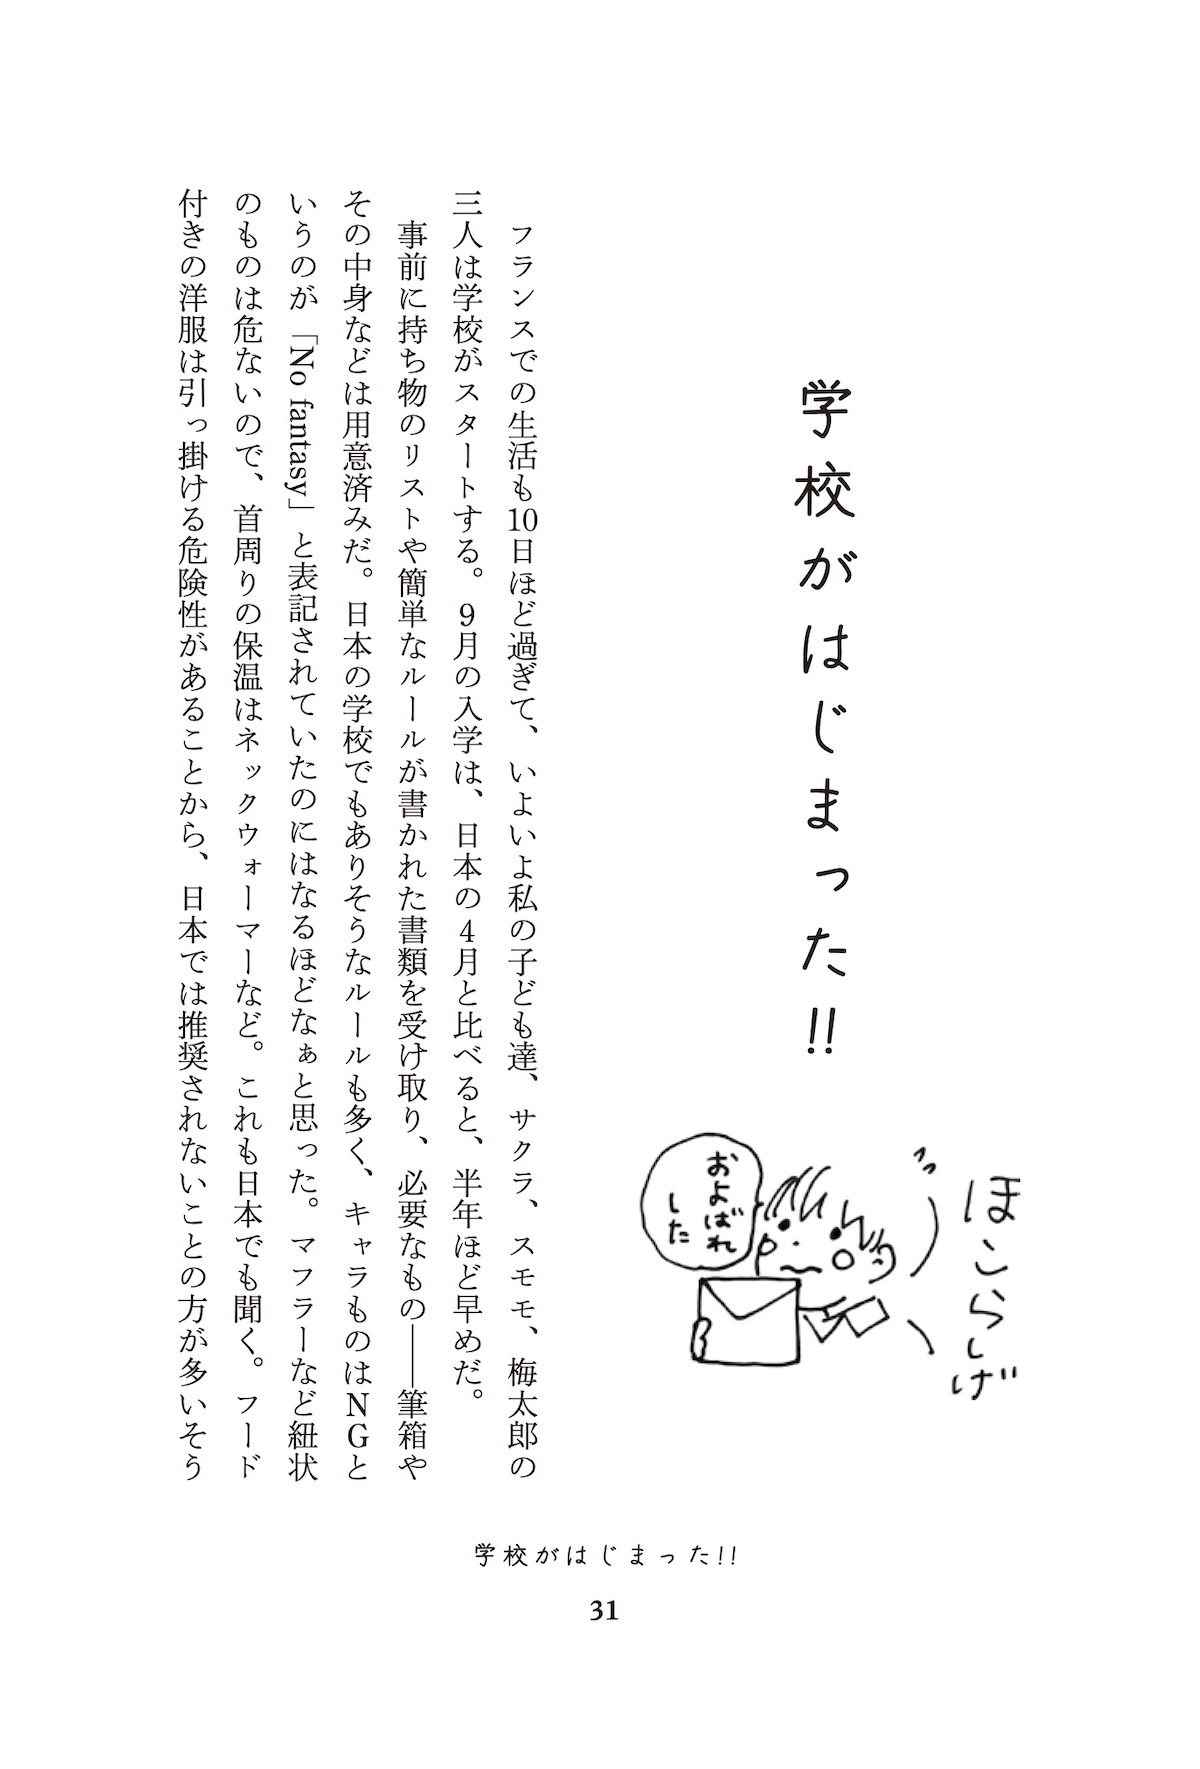 学校がはじまった!!
ほこらしげ
およばれ
した
フランスでの生活も10日ほど過ぎて、いよいよ私の子ども達、サクラ、スモモ、梅太郎の
三人は学校がスタートする。9月の入学は、日本の4月と比べると、半年ほど早めだ。
事前に持ち物のリストや簡単なルールが書かれた書類を受け取り、必要なもの――筆箱や
その中身などは用意済みだ。日本の学校でもありそうなルールも多く、キャラものはNGと
いうのが「No fantasy」と表記されていたのにはなるほどなぁと思った。マフラーなど紐状
のものは危ないので、首周りの保温はネックウォーマーなど。これも日本でも聞く。フード
付きの洋服は引っ掛ける危険性があることから、日本では推奨されないことの方が多いそう
学校がはじまった!!
31